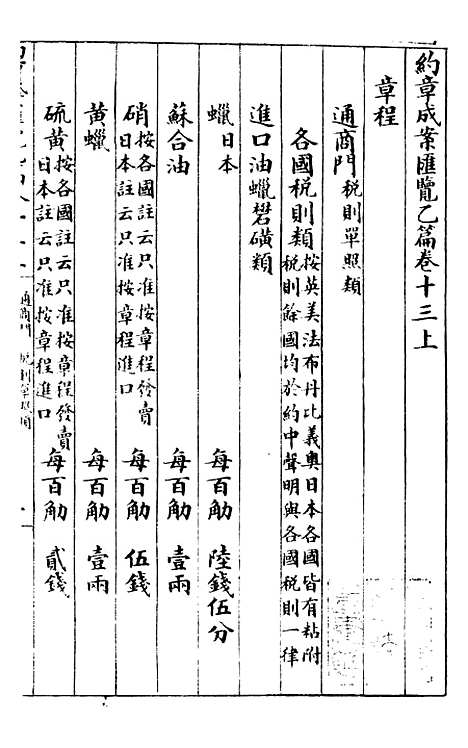 約章成案匯覽乙篇卷十三上
章程
通商門 稅則單照類
各國稅則類 按英美法布丹比義奧日本各國皆有粘附稅則餘國均於約中聲明與各國稅則一律
進口油蠟礬磺類
蠟 日本 每百觔 陸錢伍分
蘇合油 每百觔 壹兩
硝 按各國註云只准按章程發賣日本註云只准按章程進口 每百觔 伍錢
黃蠟 每百觔 壹兩
硫黃 按各國註云只准按章程發賣日本註云只准按章程進口 每百觔 貳錢
通商門 稅則單照類